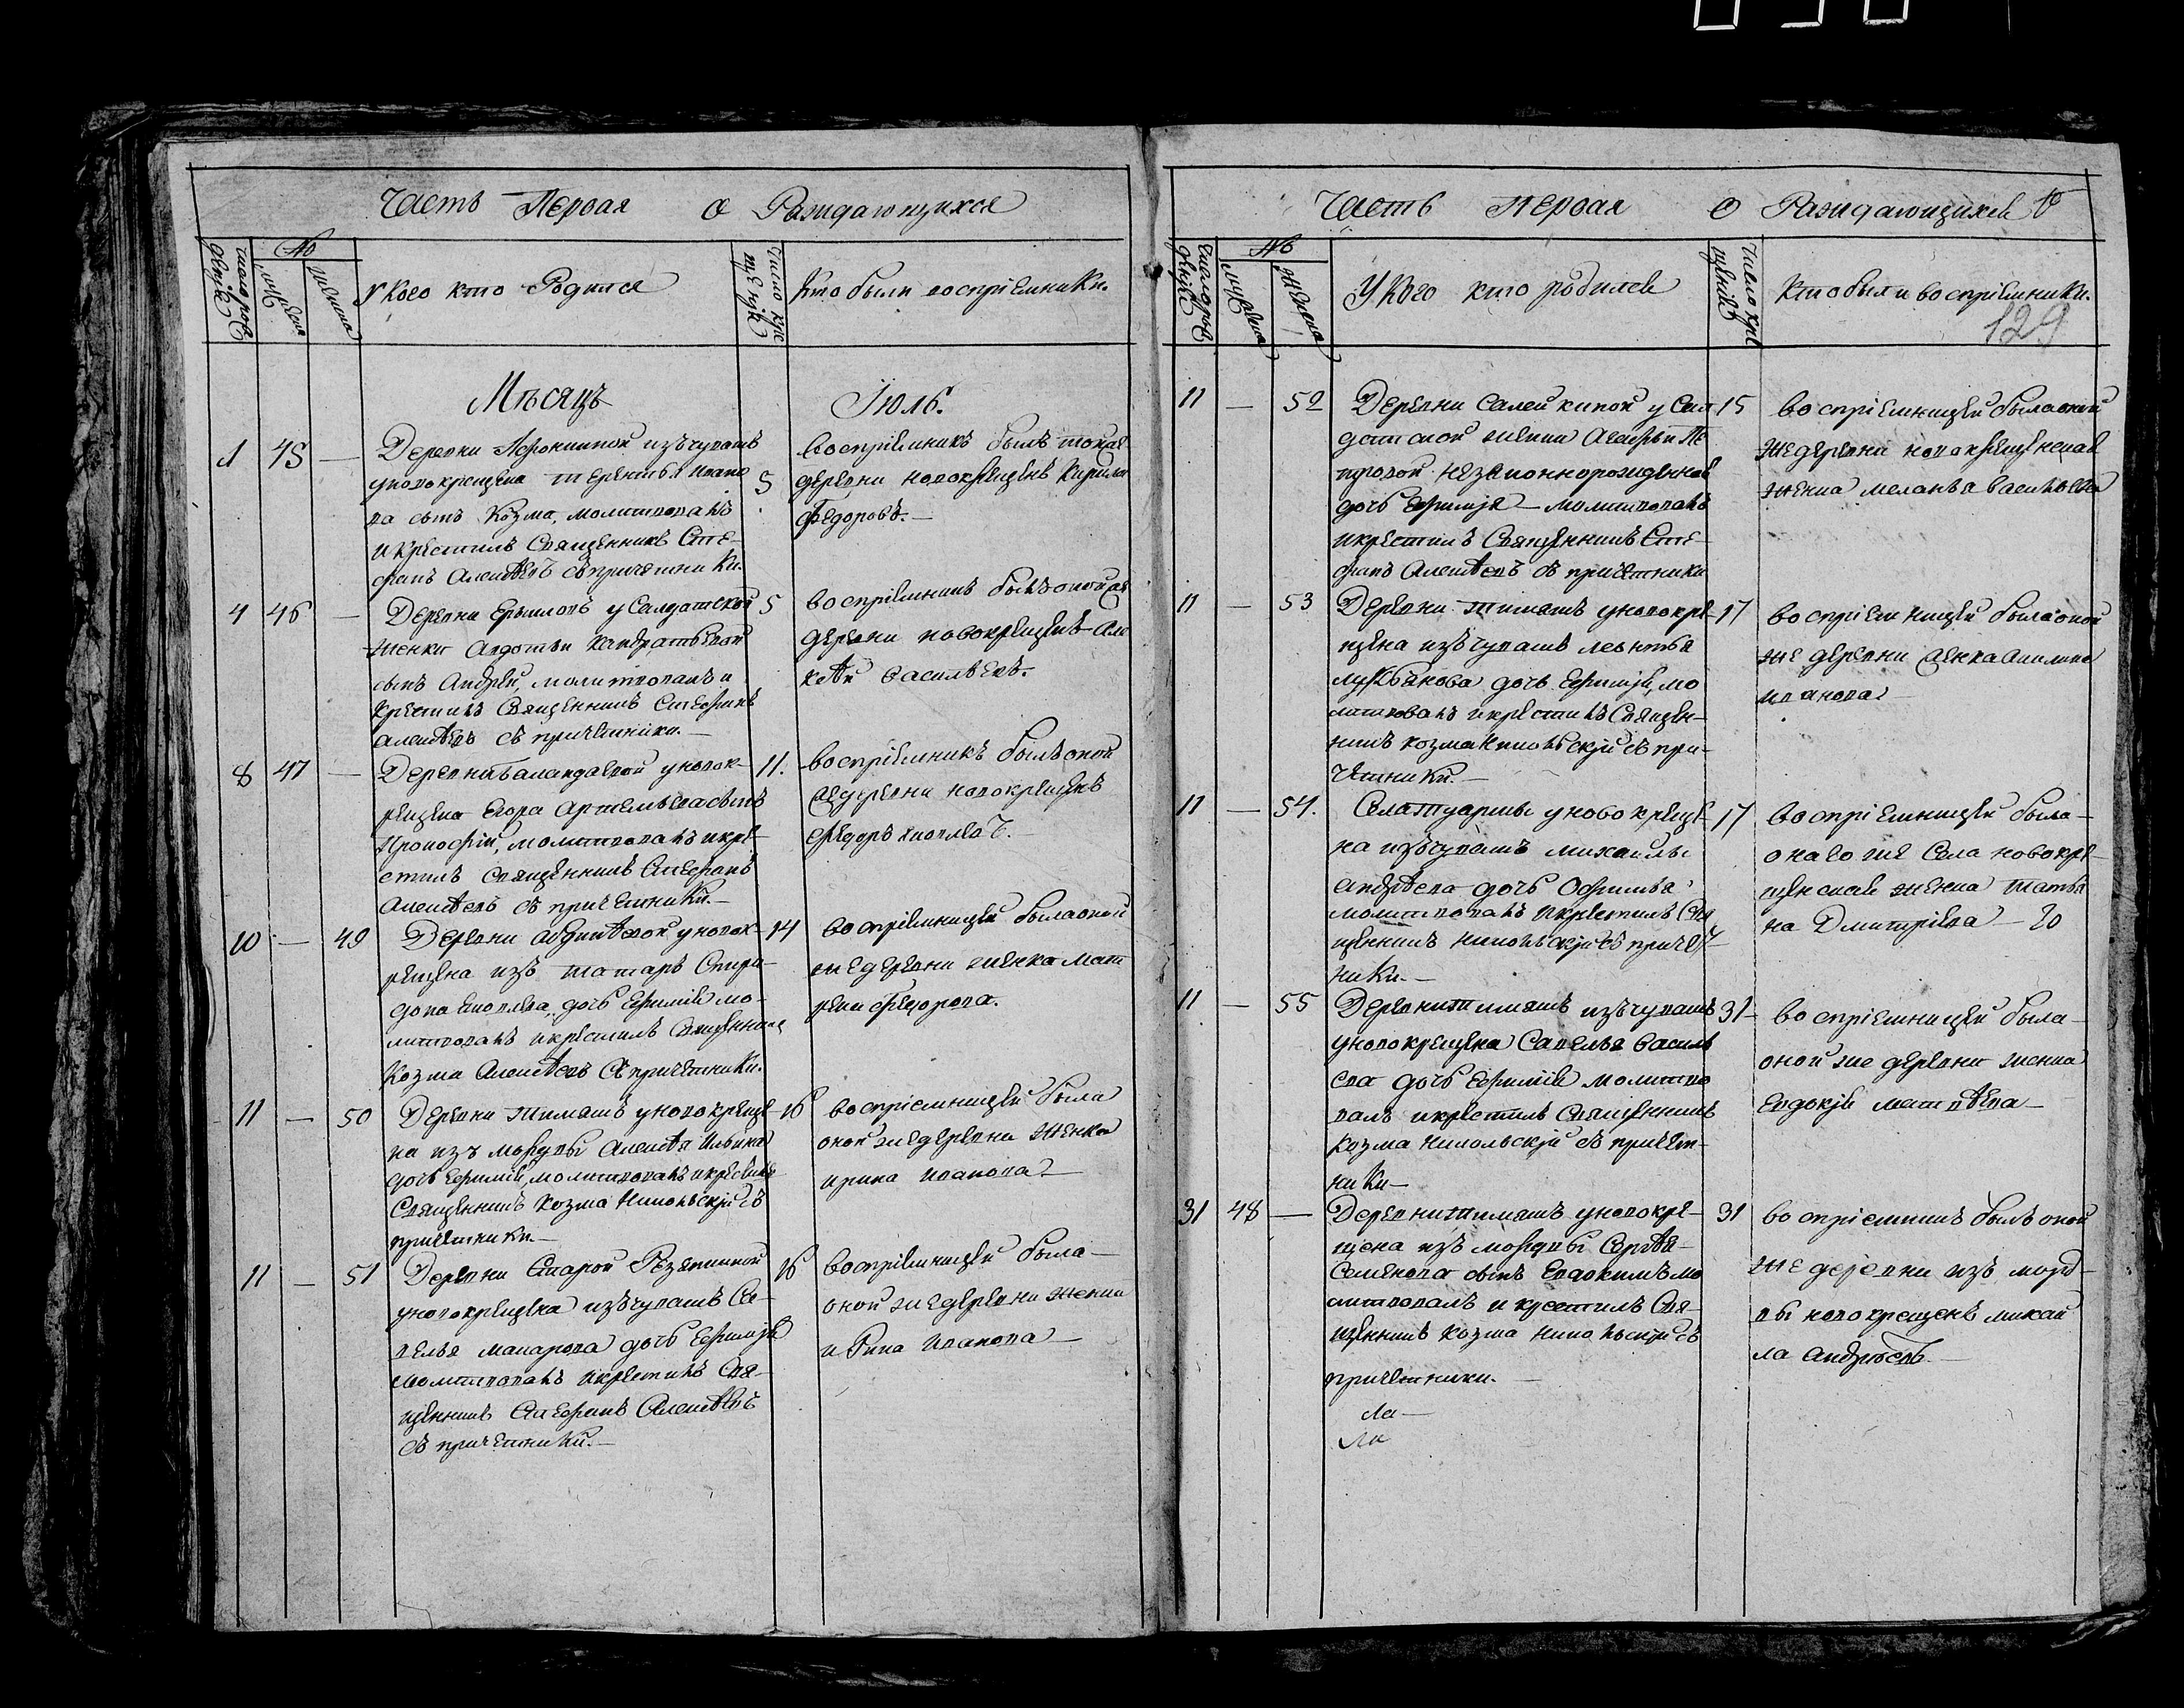 Часть Первая О Раждающихся
число рож
денія
№
мужеска
женска
У Кого кто Родился
число кре
щенія
Кто были воспріемники.
Мѣсяцъ
Іюль.
1 45 —
Деревни Афонкиной изъ чувашъ
уновокрещена Терентья Ивано
ва сынъ Козма, молитвовалъ
и крестилъ Священникъ Сте-
фанъ Алеѯѣевъ съ причетники.
5
воспріемникъ былъ тояже
деревни новокрещенъ Кирила
Федоровъ.—
4 46 —
Деревни у Салдатской
женки Авдотьи Кандратьевой
сынъ Андрей, молитвовалъ и
крестилъ Священникъ Стефанъ
Алеѯѣевъ съ причетники.—
5
воспріемникъ былъ оной же
деревни новокрещенъ Але
ксѣй Васильевъ.
8 47 —
Деревни Баландаевой уновок-
рещена Егора Артемьева сынъ
Прокофій, молитвовалъ и кре-
стилъ Священникъ Стефанъ
Алеѯѣевъ съ причетники.—
11.
воспріемникъ былъ оной
же деревни новокрещенъ
Федоръ Яковлевъ.—
10 — 49
Деревни уновок-
рещена изъ татаръ Спири-
дона Яковлева, дочь Ефимія мо-
литвовалъ и крестилъ Священникъ
Козма Алеѯѣевъ съ причетники.
14
воспріемницей была оной
же деревни женка Мат
рена Федорова.
11 — 50
Деревни Тимяшъ уновокреще-
на изъ мордвы Алеѯѣя Ильина
дочь Ефимія, молитвовалъ и крестилъ
Священникъ Козма Никольскій съ
причетники.—
16
воспріемницей была
оной же деревни женка
Ирина Иванова—
11 — 51
Деревни Старой Резяпкиной
уновокрещена изъ чувашъ Са-
велья Макарова дочь Ефимія
молитвовалъ и крестилъ Свя-
щенникъ Стефанъ Алеѯѣевъ
съ причетники.—
16
воспріемницей была—
оной же деревни женка
Ирина Иванова—
Часть первая О Раждающихся
число рож
денія
№
мужеска
женска
У Кого кто родился
число кре
щенія
Кто были воспріемники.
129
11 — 52
Деревни Салейкиной у Сал
датской женки Агафьи Пе
тровой незаконнорожденная
дочь Ефимія — молитвовалъ
и крестилъ Священникъ Сте-
фанъ Алеѯѣевъ съ причетники
15
воспріемницей была оной
же деревни новокрещенская
женка Меланья Васильева
11 — 53
Деревни Тимяшъ уновокре-
щена изъ чувашъ Леонтья
Лукьянова дочь Ефимія, мо
литвовалъ и крестилъ Священ-
никъ Козма Никольскій съ при-
четники.—
17
воспріемницей была оной
же деревни женка Акилина
Иванова
11 — 54.
Села Туармы уновокреще-
на изъ чувашъ Михаилы
Андрѣева дочь Офимья
молитвовалъ и крестилъ Свя
щенникъ Никольскій съ причет-
ники.—
17
воспріемницей была—
онаго же Села новокре-
щенская женка Татья
на Дмитрiева—
11 — 55
Деревни Тимяшъ изъ чувашъ
уновокрещена Савелья Василь
ева дочь Ефимія молитво
валъ и крестилъ Священникъ
Козма Никольскій съ причет-
ники—
31
воспріемницей была—
оной же деревни женка
Евдокія Матвѣева—
31 48 —
Деревни Тимяшъ уновокре-
щена изъ мордвы Сергѣя—
Семенова сынъ Евдокимъ мо
литвовалъ и крестилъ Свя-
щенникъ Козма Никольскій съ
причетники.—
31
воспріемникъ былъ оной
же деревни изъ морд-
вы новокрещенъ Михай
ла Андрѣевъ.—